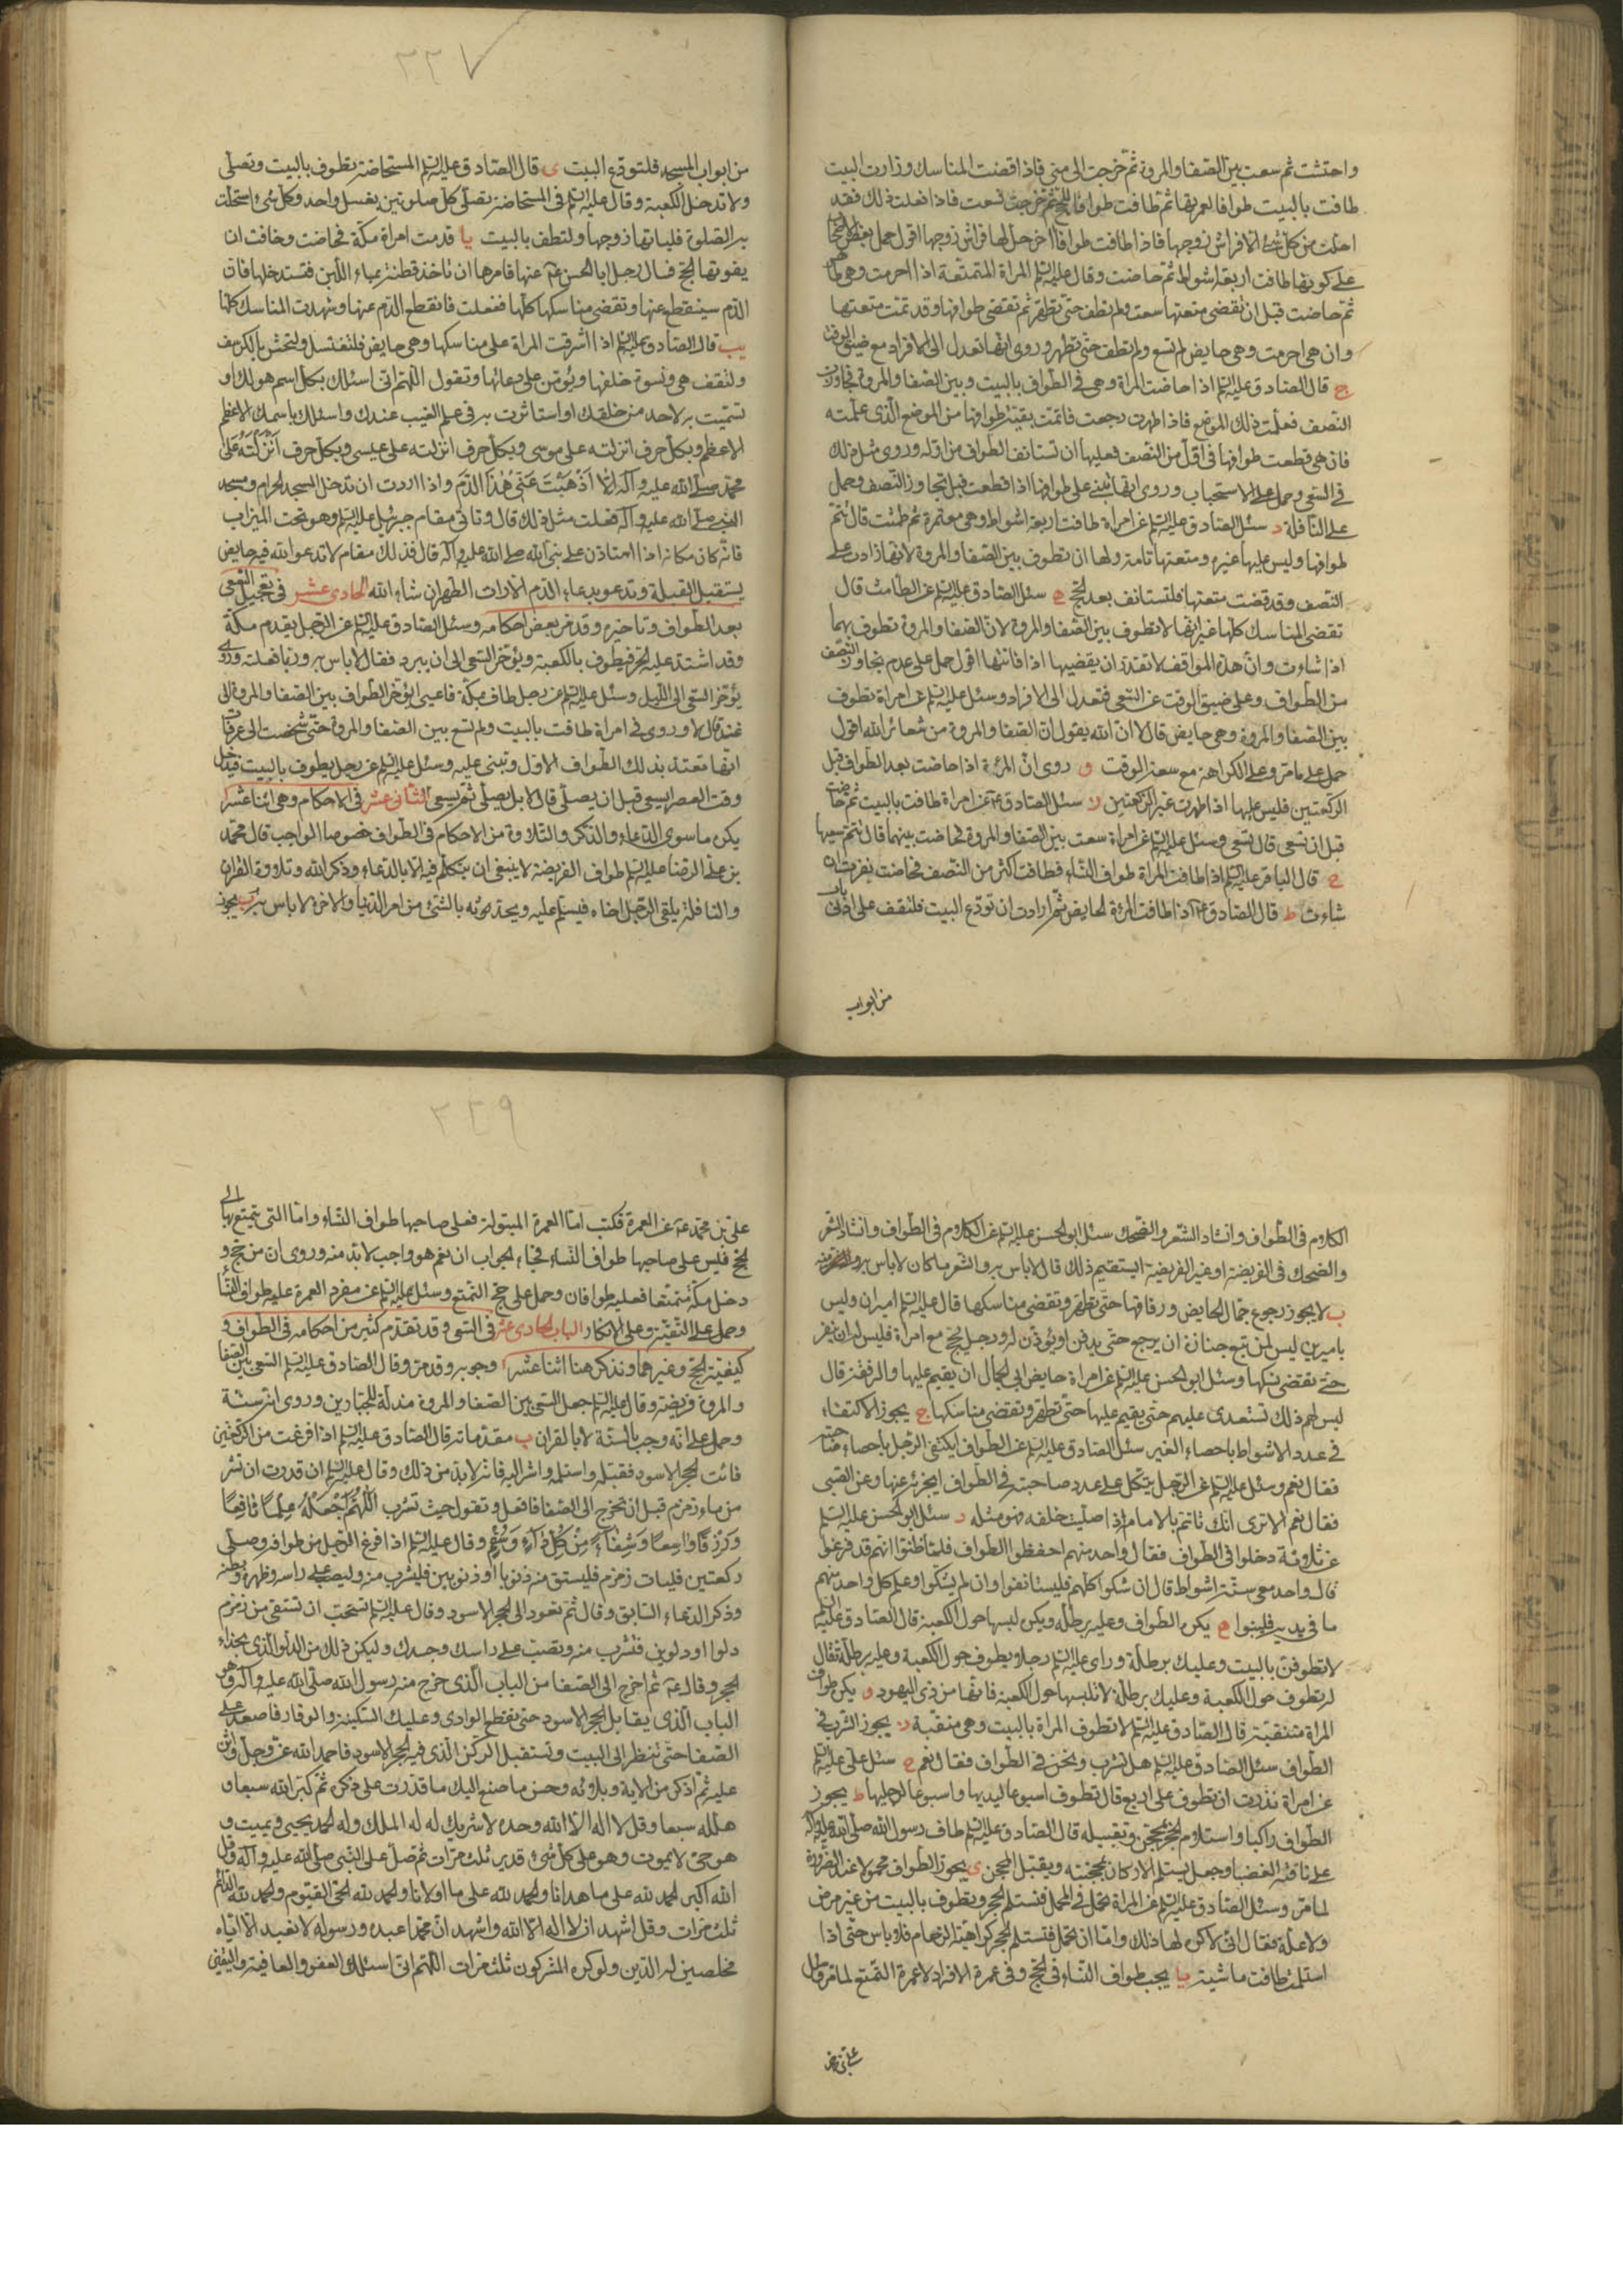 واحتشت ثم سعت بين الصفا والمروة ثم خرجت الى منى فاذا قضت المناسك وزارت البيت
طافت بالبيت طوافا لعمرتها ثم طافت طوافا للحج ثم خرجت فسعت فاذا فعلت ذلك فقد
احلت من كل شئ الا فراش زوجها فاذا طافت طوافا اخر حل لها فراش زوجها اقول حمل بعض
على كونها طافت اربعة اشواط ثم حاضت وقال عليه السلم المراة المتمتعة اذا احرمت وهي
ثم حاضت قبل ان تقضى متعتها سعت ولم تطف حتى تطهر ثم تقضى طوافها وقد تمت متعتها
وان هي احرمت وهي حايض لم تسع ولم تطف حتى تطهر وروى انها تعدل الى الافراد مع ضيق الوقت
ج قال الصادق عليه السلم اذا حاضت المراة وهي في الطواف بالبيت وبين الصفا والمروة فجاوزت
النصف فعلمت ذلك الموضع فاذا طهرت رجعت فاتمت بقية طوافها من الموضع الذى علمته
فان هي قطعت طوافها في اقل من النصف فعليها ان تستانف الطواف من اوله وروى مثل ذلك
في السعى وحمل على الاستحباب وروى انها تبنى على طوافها اذا قطعت قبل تجاوز النصف وحمل
على النافلة د سئل الصادق عليه السلم عن امراة طافت اربعة اشواط وهي معتمرة ثم طمثت قال تتم
طوافها وليس عليها غيره ومتعتها تامة ولها ان تطوف بين الصفا والمروة لانها زادت على
النصف وقد قضت متعتها فلتستانف بعد الحج ه سئل الصادق عليه السلم عن الطامث قال
تقضى المناسك كلها غير انها لا تطوف بين الصفا والمروة لان الصفا والمروة تطوف بهما
اذا شاءت وان هذه المواقف لا تقدر ان تقضيها اذا فاتتها اقول حمل على عدم تجاوز النصف
من الطواف وعلى ضيق الوقت عن السعى فتعدل الى الافراد وسئل عليه السلم عن امراة تطوف
بين الصفا والمروة وهي حايض قال لا ان الله يقول ان الصفا والمروة من شعائر الله اقول
حمل على ما مر وعلى الكراهة مع سعة الوقت و روى ان المرءة اذا حاضت بعد الطواف قبل
الركعتين فليس عليها اذا طهرت غير الركعتين ز سئل الصادق ع عن امراة طافت بالبيت ثم حاضت
قبل ان تسعى قال تسعى وسئل عليه السلم عن امراة سعت بين الصفا والمروة فحاضت بينهما قال تتم سعيها
ح قال الباقر عليه السلم اذا طافت المراة طواف النساء فطافت اكثر من النصف فحاضت نفرت ان
شاءت ط قال الصادق ع اذا طافت المرءة الحايض ثم ارادت ان تودع البيت فلتقف على ادنى باب
من ابواب
٢٢٧
من ابواب المسجد فلتودع البيت ى قال الصادق عليه السلم المستحاضة تطوف بالبيت وتصلى
ولا تدخل الكعبة وقال عليه السلم في المستحاضة تصلى كل صلوتين بغسل واحد وكل شئ استحلت
به الصلوة فلياتها زوجها ولتطف بالبيت يا قدمت امراة مكة فحاضت وخافت ان
يفوتها الحج فسال رجل ابا الحسن ع عنها فامرها ان تاخذ قطنة بماء اللبن فتستدخلها فان
الدم سينقطع عنها وتقضى مناسكها كلها ففعلت فانقطع الدم عنها وشهدت المناسك كلها
يب قال الصادق عليه السلم اذا اشرفت المراة على مناسكها وهي حايض فلتغتسل ولتحتش بالكرسف
ولتقف هي ونسوة خلفها ويؤمن على دعائها وتقول اللهم انى اسئلك بكل اسم هو لك او
تسميت به لاحد من خلقك او استاثرت به في علم الغيب عندك واسئلك باسمك الاعظم
الاعظم وبكل حرف انزلته على موسى وبكل حرف انزلته على عيسى وبكل حرف انزلته على
محمد صلى الله عليه وآله الا اذهبت عنى هذا الدم واذا اردت ان تدخل المسجد الحرام ومسجد
النبى صلى الله عليه وآله فعلت مثل ذلك قال وتاتى مقام جبرئيل عليه السلم وهو تحت الميزاب
فانه كان مكانه اذا استاذن على نبى الله صلى الله عليه وآله قال فذلك مقام لا تدعو الله فيه حايض
يستقبل القبلة وتدعو بدعاء الدم الا رات الطهر ان شاء الله الحادى عشر في تعجيل السعى
بعد الطواف وتاخيره وقد مر بعض احكامه وسئل الصادق عليه السلم عن الرجل يقدم مكة
وقد اشتد عليه الحر فيطوف بالكعبة ويؤخر السعى الى ان يبرد فقال لا باس به وربما فعلته وروى
يؤخر السعى الى الليل وسئل عليه السلم عن رجل طاف بمكة فاعيى ايؤخر الطواف بين الصفا والمروة الى
غد قال لا وروى في امراة طافت بالبيت ولم تسع بين الصفا والمروة حتى شخصت الى عرفات
انها تعتد بذلك الطواف الاول وتبنى عليه وسئل عليه السلم عن رجل يطوف بالبيت فيدخل
وقت العصر ايسعى قبل ان يصلى قال لا بل يصلى ثم يسعى الثانى عشر في الاحكام وهي اثنا عشر ا
يكره ما سوى الدعاء والذكر والتلاوة من الاحكام في الطواف خصوصا الواجب قال محمد
بن على الرضا عليه السلم طواف الفريضة لا ينبغى ان يتكلم فيه الا بالدعاء وذكر الله وتلاوة القران
والنافلة يلقى الرجل اخاه فيسلم عليه ويحدثه بالشئ من امر الدنيا والاخرة لا باس به ب يجوز
الكلام في الطواف وانشاد الشعر والضحك سئل ابو الحسن عليه السلم عن الكلام في الطواف وانشاد الشعر
والضحك في الفريضة او غير الفريضة ايستقيم ذلك قال لا باس به والشعر ما كان لا باس به
ب لا يجوز رجوع جمال الحايض ورفاقها حتى تطهر وتقضى مناسكها قال عليه السلم اميران وليس
باميرين ليس لمن تبع جنازة ان يرجع حتى يدفن او يؤذن له ورجل يحج مع امراة فليس له ان ينفر
حتى تقضى نسكها وسئل ابو الحسن عليه السلم عن امراة حايض ابى الجمال ان يقيم عليها والرفقة قال
ليس لهم ذلك تستعدى عليهم حتى يقيم عليها حتى تطهر وتقضى مناسكها ج يجوز الاكتفاء
في عدد الاشواط باحصاء الغير سئل الصادق عليه السلم عن الطواف ايكتفى الرجل باحصاء صاحبه
فقال نعم وسئل عليه السلم عن الرجل يتكل على عدد صاحبته في الطواف ايجزئه عنها وعن الصبى
فقال نعم الا ترى انك تاتم بالامام اذا صليت خلفه فهو مثله د سئل ابو الحسن عليه السلم
عن ثلاثة دخلوا في الطواف فقال واحد منهم احفظوا الطواف فلما ظنوا انهم قد فرغوا
قال واحد معى ستة اشواط قال ان شكوا كلهم فليستانفوا وان لم يشكوا وعلم كل واحد منهم
ما في يديه فليبنوا ه يكره الطواف وعليه برطلة ويكره لبسها حول الكعبة قال الصادق عليه السلم
لا تطوفن بالبيت وعليك برطلة وراى عليه السلم رجلا يطوف حول الكعبة وعليه برطلة فقال
له تطوف حول الكعبة وعليك برطلة لا تلبسها حول الكعبة فانها من زى اليهود و يكره طواف
المراة متنقبة قال الصادق عليه السلم لا تطوف المراة بالبيت وهي متنقبة ز يجوز الشرب في
الطواف سئل الصادق عليه السلم هل نشرب ونحن في الطواف فقال نعم ح سئل على عليه السلم
عن امراة نذرت ان تطوف على اربع قال تطوف اسبوعا ليديها واسبوعا لرجليها ط يجوز
الطواف راكبا واستلام الحجر بمحجن وتقبيله قال الصادق عليه السلم طاف رسول الله صلى الله عليه وآله
على ناقته الغضبا وجعل يستلم الاركان بمحجنه ويقبل المحجن ى يجوز الطواف محمولا عند الضرورة
لما مر وسئل الصادق عليه السلم عن المراة تحمل في المحمل فتستلم الحجر وتطوف بالبيت من غير مرض
ولا علة فقال انى لاكره لها ذلك واما ان تحمل فتستلم الحجر كراهية الزحام فلا باس حتى اذا
استلمت طافت ماشية يا يجب طواف النساء في الحج وفي عمرة الافراد لا عمرة التمتع لما مر وسئل
على بن محمد
٢٢٩
على بن محمد ع عن العمرة فكتب اما العمرة المبتولة فعلى صاحبها طواف النساء واما التى يتمتع بها الى
الحج فليس على صاحبها طواف النساء فجاء الجواب ان نعم هو واجب لا بد منه وروى ان من حج و
دخل مكة متمتعا فعليه طوافان وحمل على حج التمتع وسئل عليه السلم عن مفرد العمرة عليه طواف النساء
وحمل على التقية وعلى الانكار الباب الحادى عشر في السعى وقد تقدم كثير من احكامه في الطواف و
كيفية الحج وغيرهما ونذكر هنا اثنا عشر ا وجوبه وقد مر وقال الصادق عليه السلم السعى بين الصفا
والمروة فريضة وقال عليه السلم جعل السعى بين الصفا والمروة مذلة للجبارين وروى انه سنة
وحمل على انه وجب بالسنة لا بالقران ب مقدماته قال الصادق عليه السلم اذا فرغت من الركعتين
فائت الحجر الاسود فقبله واستلمه واشر اليه فانه لا بد من ذلك وقال عليه السلم ان قدرت ان تشر
من ماء زمزم قبل ان تخرج الى الصفا فافعل وتقول حيث تشرب اللهم اجعله علما نافعا
ورزقا واسعا وشفاء من كل داء وسقم وقال عليه السلم اذا فرغ الرجل من طوافه وصلى
ركعتين فليات زمزم فليستق منه ذنوبا او ذنوبين فليشرب منه وليصب على راسه وظهره وبطنه
وذكر الدعاء السابق وقال ثم تعود الى الحجر الاسود وقال عليه السلم تستحب ان تستقى من زمزم
دلوا او دلوين فتشرب منه وتصب على راسك وجسدك وليكن ذلك من الدلو الذى بحذاء
الحجر وقال ع ثم اخرج الى الصفا من الباب الذى خرج منه رسول الله صلى الله عليه وآله وهو
الباب الذى يقابل الحجر الاسود حتى تقطع الوادى وعليك السكينة والوقار فاصعد على
الصفا حتى تنظر الى البيت وتستقبل الركن الذى فيه الحجر الاسود فاحمد الله عز وجل واثن
عليه ثم اذكر من الائه وبلائه وحسن ما صنع اليك ما قدرت على ذكره ثم كبر الله سبعا و
هلله سبعا وقل لا اله الا الله وحده لا شريك له له الملك وله الحمد يحيى ويميت و
هو حى لا يموت وهو على كل شئ قدير ثلث مرات ثم صل على النبى صلى الله عليه وآله وقل
الله اكبر الحمد لله على ما هدانا والحمد لله على ما اولانا والحمد لله الحى القيوم والحمد لله الدائم
ثلث مرات وقل اشهد ان لا اله الا الله واشهد ان محمدا عبده ورسوله لا نعبد الا اياه
مخلصين له الدين ولو كره المشركون ثلث مرات اللهم انى اسئلك العفو والعافية واليقين